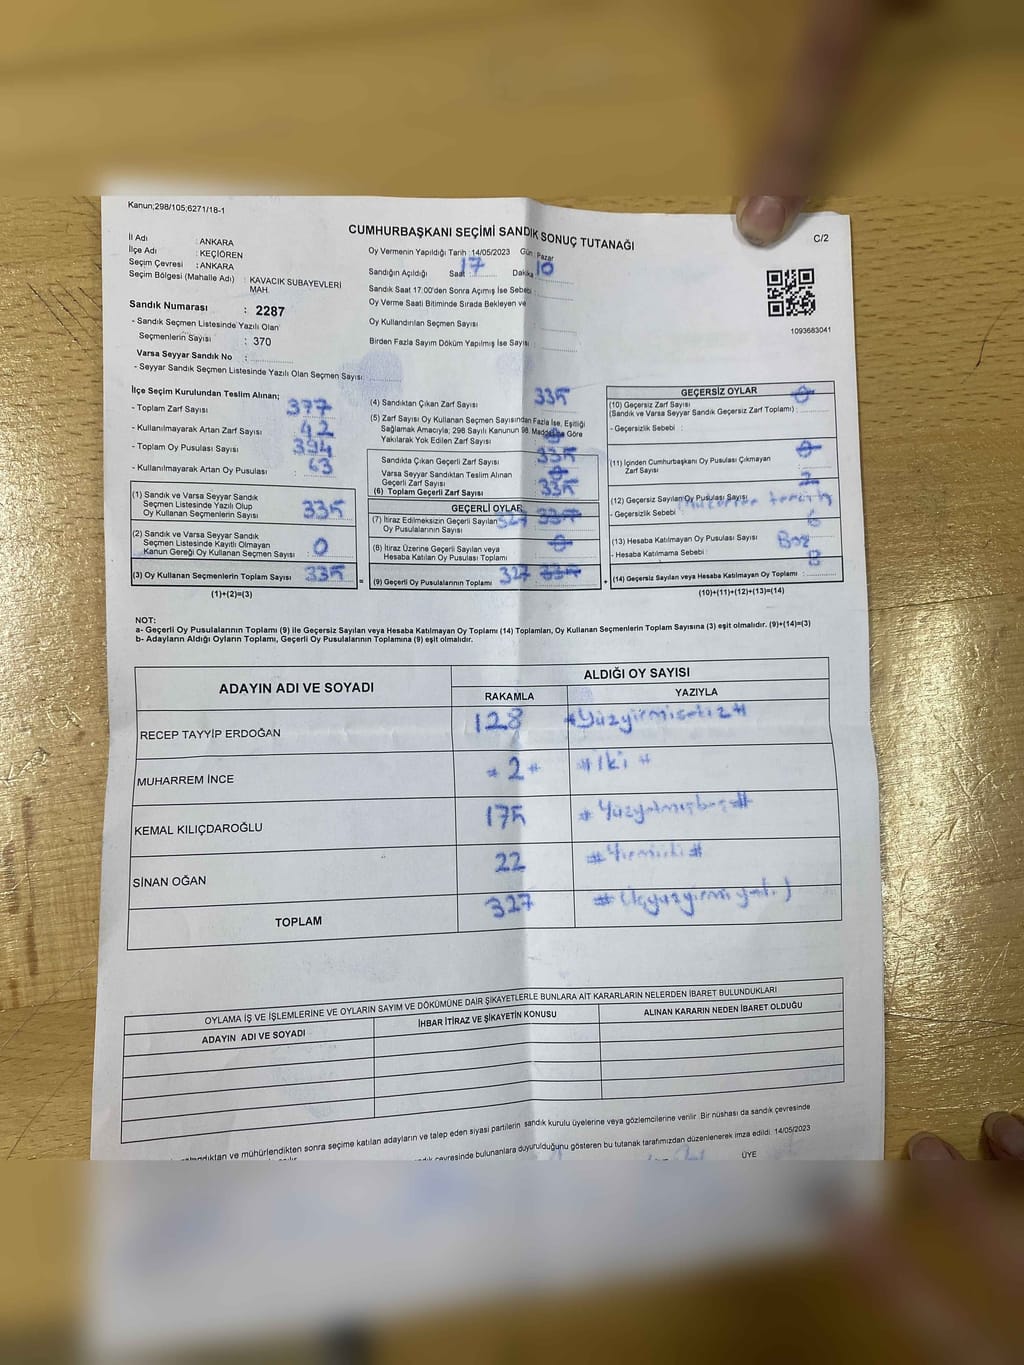 Kanun;298/105;6271/18-1
CUMHURBAŞKANI SEÇİMİ SANDIK SONUÇ TUTANAĞI
C/2
İl Adı : ANKARA
İlçe Adı : KEÇİÖREN
Seçim Çevresi : ANKARA
Seçim Bölgesi (Mahalle Adı) : KAVACIK SUBAYEVLERİ
MAH.
Oy Vermenin Yapıldığı Tarih :14/05/2023 Gün : Pazar
Sandığın Açıldığı Saat 17 Dakika 10
Sandık Saat 17:00'den Sonra Açımış İse Sebebi :
Oy Verme Saati Bitiminde Sırada Bekleyen ve
Oy Kullandırılan Seçmen Sayısı :
Birden Fazla Sayım Döküm Yapılmış İse Sayısı :
1093683041
Sandık Numarası : 2287
- Sandık Seçmen Listesinde Yazılı Olan
Seçmenlerin Sayısı : 370
Varsa Seyyar Sandık No :
- Seyyar Sandık Seçmen Listesinde Yazılı Olan Seçmen Sayısı:
İlçe Seçim Kurulundan Teslim Alınan;
- Toplam Zarf Sayısı : 377
- Kullanılmayarak Artan Zarf Sayısı : 42
- Toplam Oy Pusulası Sayısı : 394
- Kullanılmayarak Artan Oy Pusulası : 63
(1) Sandık ve Varsa Seyyar Sandık
Seçmen Listesinde Yazılı Olup
Oy Kullanan Seçmenlerin Sayısı : 335
(2) Sandık ve Varsa Seyyar Sandık
Seçmen Listesinde Kayıtlı Olmayan
Kanun Gereği Oy Kullanan Seçmen Sayısı : 0
(3) Oy Kullanan Seçmenlerin Toplam Sayısı : 335
(1)+(2)=(3)
=
(4) Sandıktan Çıkan Zarf Sayısı : 335
(5) Zarf Sayısı Oy Kullanan Seçmen Sayısından Fazla İse, Eşitliği
Sağlamak Amacıyla; 298 Sayılı Kanunun 98. Maddesine Göre
Yakılarak Yok Edilen Zarf Sayısı : 0
Sandıkta Çıkan Geçerli Zarf Sayısı : 335
Varsa Seyyar Sandıktan Teslim Alınan
Geçerli Zarf Sayısı : 0
(6) Toplam Geçerli Zarf Sayısı : 335
GEÇERLİ OYLAR
(7) İtiraz Edilmeksizin Geçerli Sayılan 327 335
Oy Pusulalarının Sayısı
(8) İtiraz Üzerine Geçerli Sayılan veya
Hesaba Katılan Oy Pusulası Toplamı : 0
(9) Geçerli Oy Pusulalarının Toplamı : 327 335
+
GEÇERSİZ OYLAR
(10) Geçersiz Zarf Sayısı 0
(Sandık ve Varsa Seyyar Sandık Geçersiz Zarf Toplamı) :
- Geçersizlik Sebebi :
(11) İçinden Cumhurbaşkanı Oy Pusulası Çıkmayan 0
Zarf Sayısı
(12) Geçersiz Sayılan Oy Pusulası Sayısı : 2
- Geçersizlik Sebebi :
(13) Hesaba Katılmayan Oy Pusulası Sayısı : 6
- Hesaba Katılmama Sebebi : Boş
(14) Geçersiz Sayılan veya Hesaba Katılmayan Oy Toplamı : 8
(10)+(11)+(12)+(13)=(14)
NOT:
a- Geçerli Oy Pusulalarının Toplamı (9) ile Geçersiz Sayılan veya Hesaba Katılmayan Oy Toplamı (14) Toplamları, Oy Kullanan Seçmenlerin Toplam Sayısına (3) eşit olmalıdır. (9)+(14)=(3)
b- Adayların Aldığı Oyların Toplamı, Geçerli Oy Pusulalarının Toplamına (9) eşit olmalıdır.
ADAYIN ADI VE SOYADI
ALDIĞI OY SAYISI
RAKAMLA YAZIYLA
RECEP TAYYİP ERDOĞAN 128 #Yüzyirmisekiz#
MUHARREM İNCE # 2 # # iki #
KEMAL KILIÇDAROĞLU 175
SİNAN OĞAN 22 #Yirmiiki#
TOPLAM 327
OYLAMA İŞ VE İŞLEMLERİNE VE OYLARIN SAYIM VE DÖKÜMÜNE DAİR ŞİKAYETLERLE BUNLARA AİT KARARLARIN NELERDEN İBARET BULUNDUKLARI
ADAYIN ADI VE SOYADI İHBAR İTİRAZ VE ŞİKAYETİN KONUSU ALINAN KARARIN NEDEN İBARET OLDUĞU
ve mühürlendikten sonra seçime katılan adayların ve talep eden siyasi partilerin sandık kurulu üyelerine veya gözlemcilerine verilir. Bir nüshası da sandık çevresinde
çevresinde bulunanlara duyurulduğunu gösteren bu tutanak tarafımızdan düzenlenerek imza edildi. 14/05/2023
ÜYE